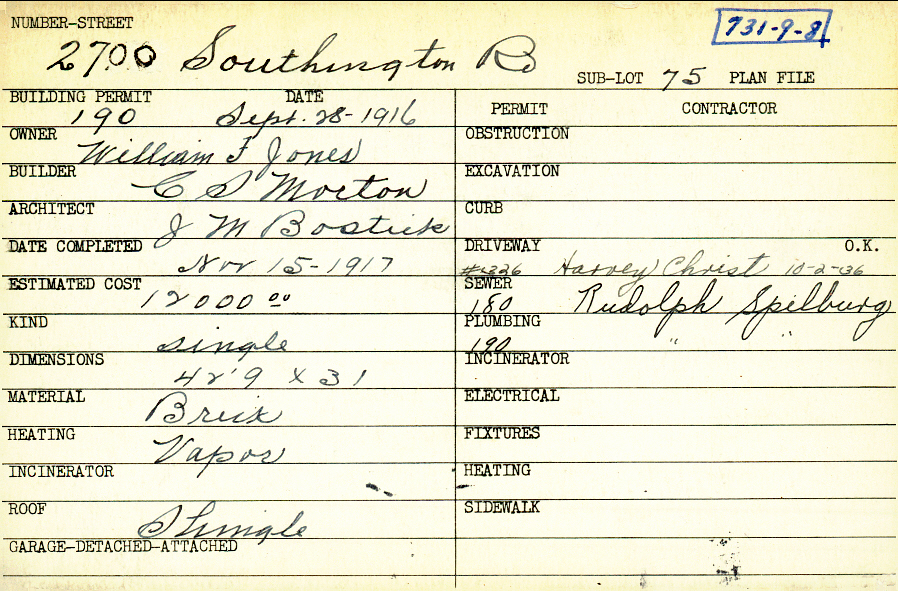 NUMBER-STREET
731-9-84
2700 Southington Rd
SUB-LOT 75 PLAN FILE
BUILDING PERMIT DATE
190 Sept. 28-1916
OWNER
William F Jones
BUILDER
C S Morton
ARCHITECT
J M Bostick
DATE COMPLETED
Nov 15-1917
ESTIMATED COST
12000 00
KIND
single
DIMENSIONS
42'9 x 31
MATERIAL
Brick
HEATING
Vapor
INCINERATOR
ROOF
Shingle
GARAGE-DETACHED-ATTACHED
PERMIT CONTRACTOR
OBSTRUCTION
EXCAVATION
CURB
DRIVEWAY O.K.
Harvey Christ 10-2-36
SEWER
180 Rudolph Spilburg
PLUMBING
190 " "
INCINERATOR
ELECTRICAL
FIXTURES
HEATING
SIDEWALK